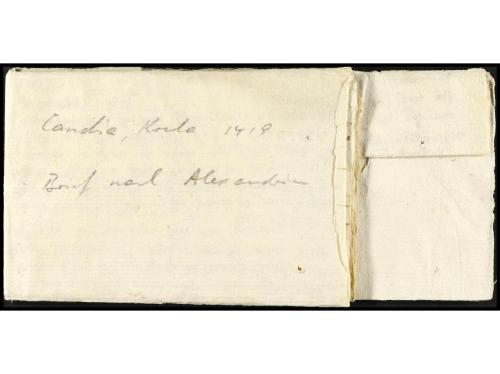 Candia, Kreta 1419
Brief nach Alexandria